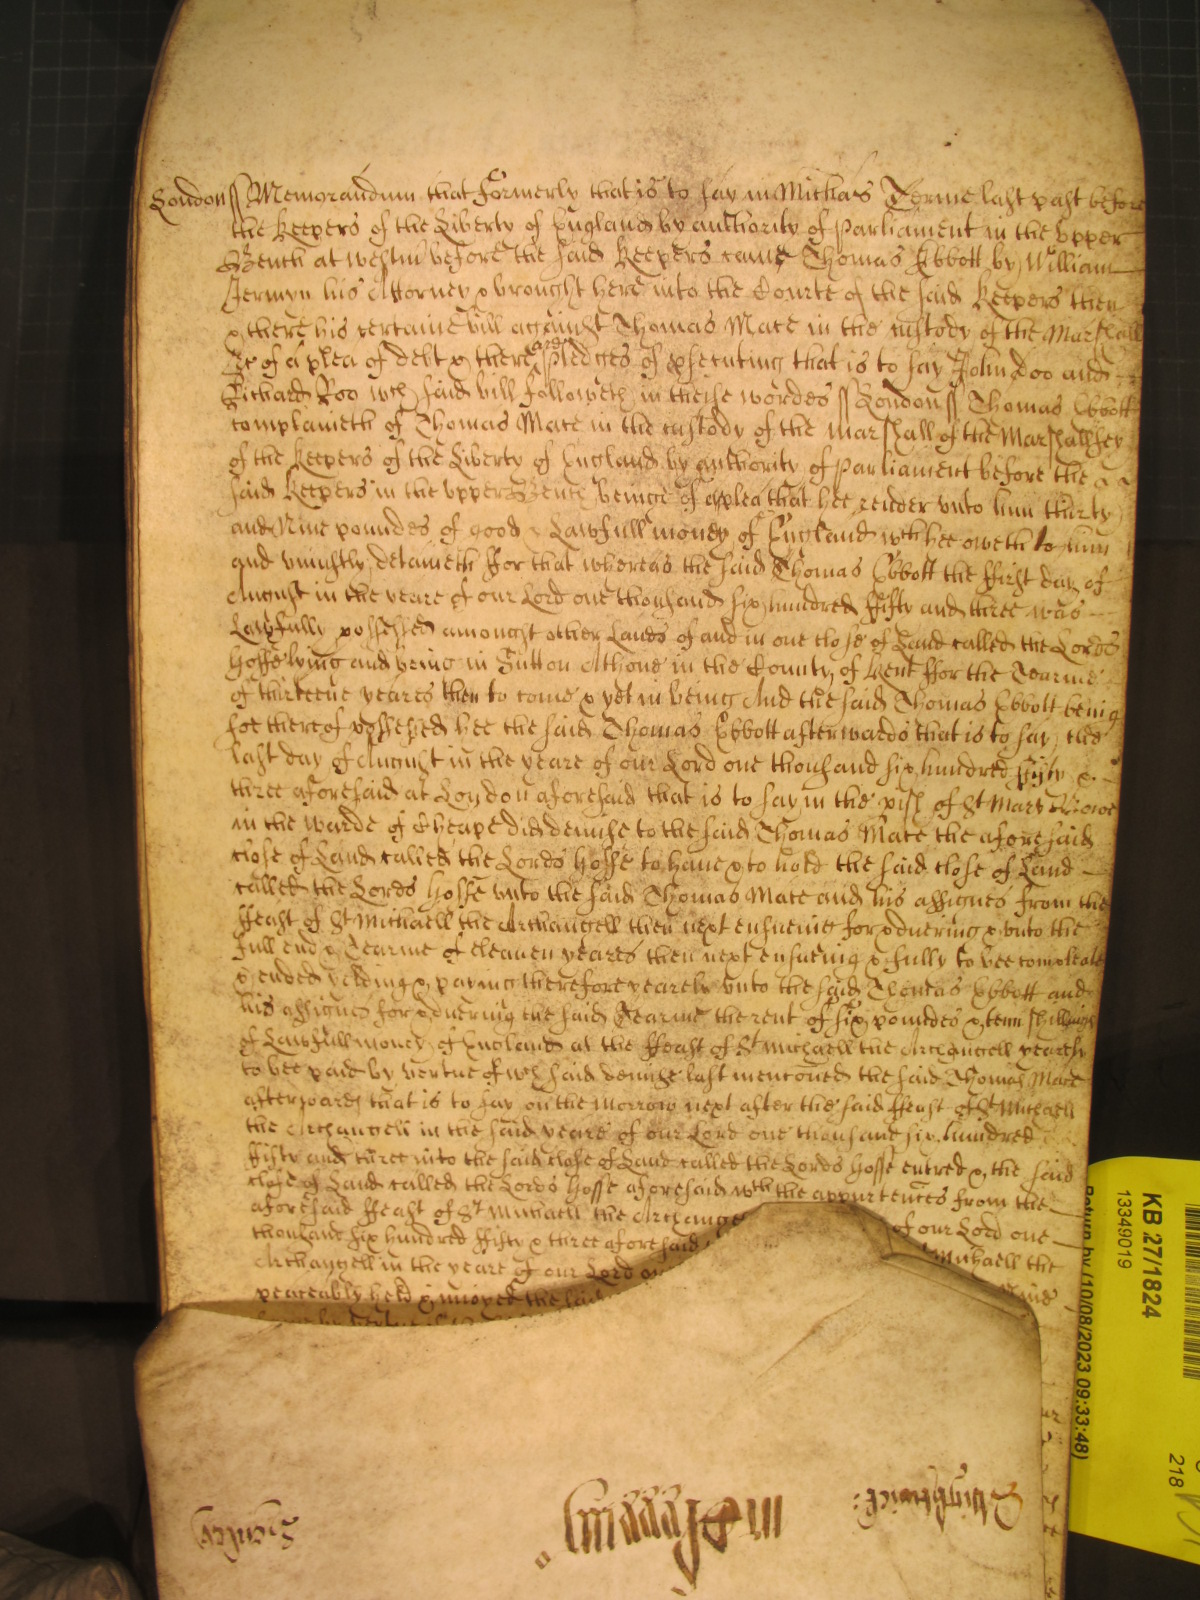 London ss Memorandum that formerly that is to say in Michãs Terme last past before
the Keepers of the Liberty of England by authority of Parliament in the Upper
Bench at Westm̃ before the said Keepers came Thomas Ebbott by William
Jermyn his Attorney & brought here into the Courte of the said Keepers then
& there his certaine bill against Thomas Mace in the custody of the Marshall
&c of a plea of debt & there are pledges of psecuting that is to say John Doo and
Richard Roo wch said bill followeth in theise wordes ss London ss Thomas Ebbott
complaineth of Thomas Mace in the custody of the Marshall of the Marshallsey
of the Keepers of the Liberty of England by authority of Parliament before the
said Keepers in the upper Bench beinge of a plea that hee render unto him thirty
and Nine poundes of good & Lawfull money of England wch hee oweth to him
and uniustly detaineth ffor that whereas the said Thomas Ebbott the ffirst day of
August in the yeare of our Lord one thousand six hundred ffifty and three was
Lawfully possessed amongst other Lands of and in one close of Land called the Lords
Hosse lying and being in Sutton Athone in the County of Kent ffor the Tearme
of thirteene yeares then to come & yet in being And the said Thomas Ebbott being
soe thereof possessed hee the said Thomas Ebbott afterwards that is to say the
last day of August in the yeare of our Lord one thousand six hundred ffifty &
three aforesaid at London aforesaid that is to say in the pish of St Mary Bowe
in the warde of Cheape did demise to the said Thomas Mace the aforesaid
close of Land called the Lords Hosse to have & to hold the said close of Land
called the Lords Hosse unto the said Thomas Mace and his assignes from the
ffeast of St Michaell the Archangell then next ensueing for & dueringe & unto the
full end & Tearme of eleaven yeares then next ensueing & fully to bee compleate
& ended yelding & paying therefore yearely unto the said Thomas Ebbott and
his assignes for & dueringe the said Tearme the rent of six poundes & tenn shillings
of Lawfull money of England at the ffeast of St Michaell the Archangell yearely
to bee paid by vertue of wch said demise last mentioned the said Thomas Mace
afterwards that is to say on the Morrow next after the said ffeast of St Michaell
the Archangell in the said yeare of our Lord one thousand six hundred
ffifty and three into the said close of Land called the Lords Hosse entred & the said
close of Land called the Lords Hosse aforesaid wth the appurtences from the
aforesaid ffeast of St Michaell the Archange of our Lord one
thousand six hundred ffifty & three aforesaid Michaell the
Archangell in the yeare of our Lord
peaceably held & inioyed the said
KB 27/1824
13349019
Return by (10/08/2023 09:33:48)
218